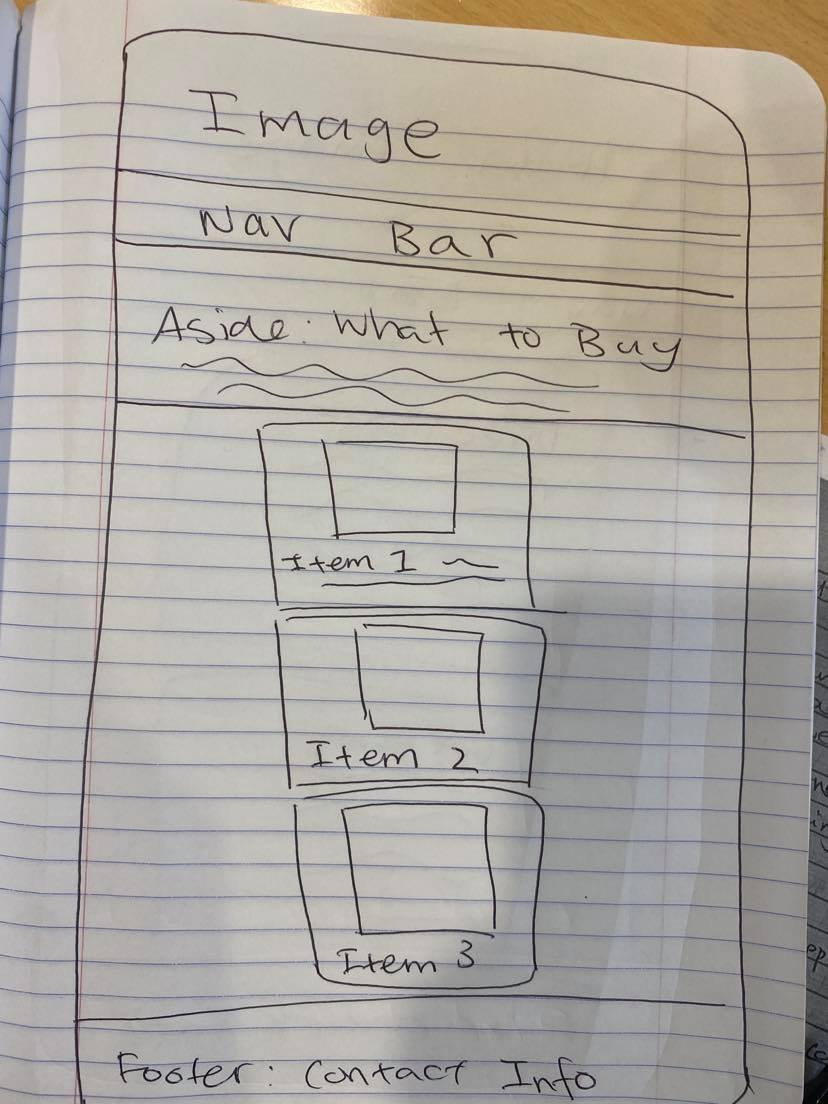 Image
Nav Bar
Aside: What to Buy
Item 1
Item 2
Item 3
Footer: Contact Info